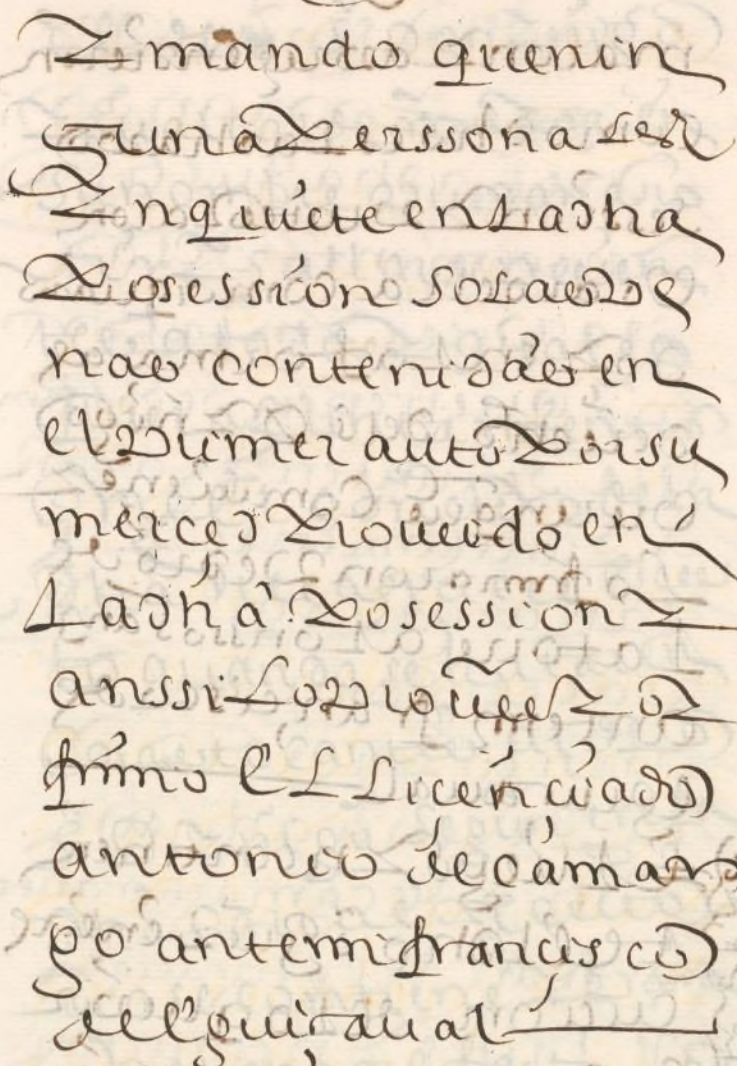 Y mando que nin
guna perssona les
ynquiete en la dha
posession so la pe
na contenida en
el primer auto por su
merced proueido en
la dha posession y
anssi lo proueyo y
firmo el licenciado
antonio de camar
go ante mi francisco
del quitaual